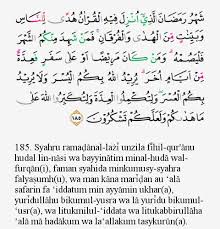 شَهْرُ رَمَضَانَ الَّذِيْٓ اُنْزِلَ فِيْهِ الْقُرْاٰنُ هُدًى لِّلنَّاسِ
وَبَيِّنٰتٍ مِّنَ الْهُدٰى وَالْفُرْقَانِۚ فَمَنْ شَهِدَ مِنْكُمُ الشَّهْرَ
فَلْيَصُمْهُۗ وَمَنْ كَانَ مَرِيْضًا اَوْ عَلٰى سَفَرٍ فَعِدَّةٌ
مِّنْ اَيَّامٍ اُخَرَۗ يُرِيْدُ اللّٰهُ بِكُمُ الْيُسْرَ وَلَا يُرِيْدُ
بِكُمُ الْعُسْرَۖ وَلِتُكْمِلُوا الْعِدَّةَ وَلِتُكَبِّرُوا اللّٰهَ
عَلٰى مَا هَدٰىكُمْ وَلَعَلَّكُمْ تَشْكُرُوْنَ ١٨٥
185. Syahru ramaḍānal-lażī unzila fīhil-qur'ānu
hudal lin-nāsi wa bayyinātim minal-hudā wal-
furqān(i), faman syahida minkumusy-syahra
falyaṣumh(u), wa man kāna marīḍan au ‘alā
safarin fa ‘iddatum min ayyāmin ukhar(a),
yurīdullāhu bikumul-yusra wa lā yurīdu bikumul-
‘usr(a), wa litukmilul-‘iddata wa litukabbirullāha
‘alā mā hadākum wa la‘allakum tasykurūn(a).